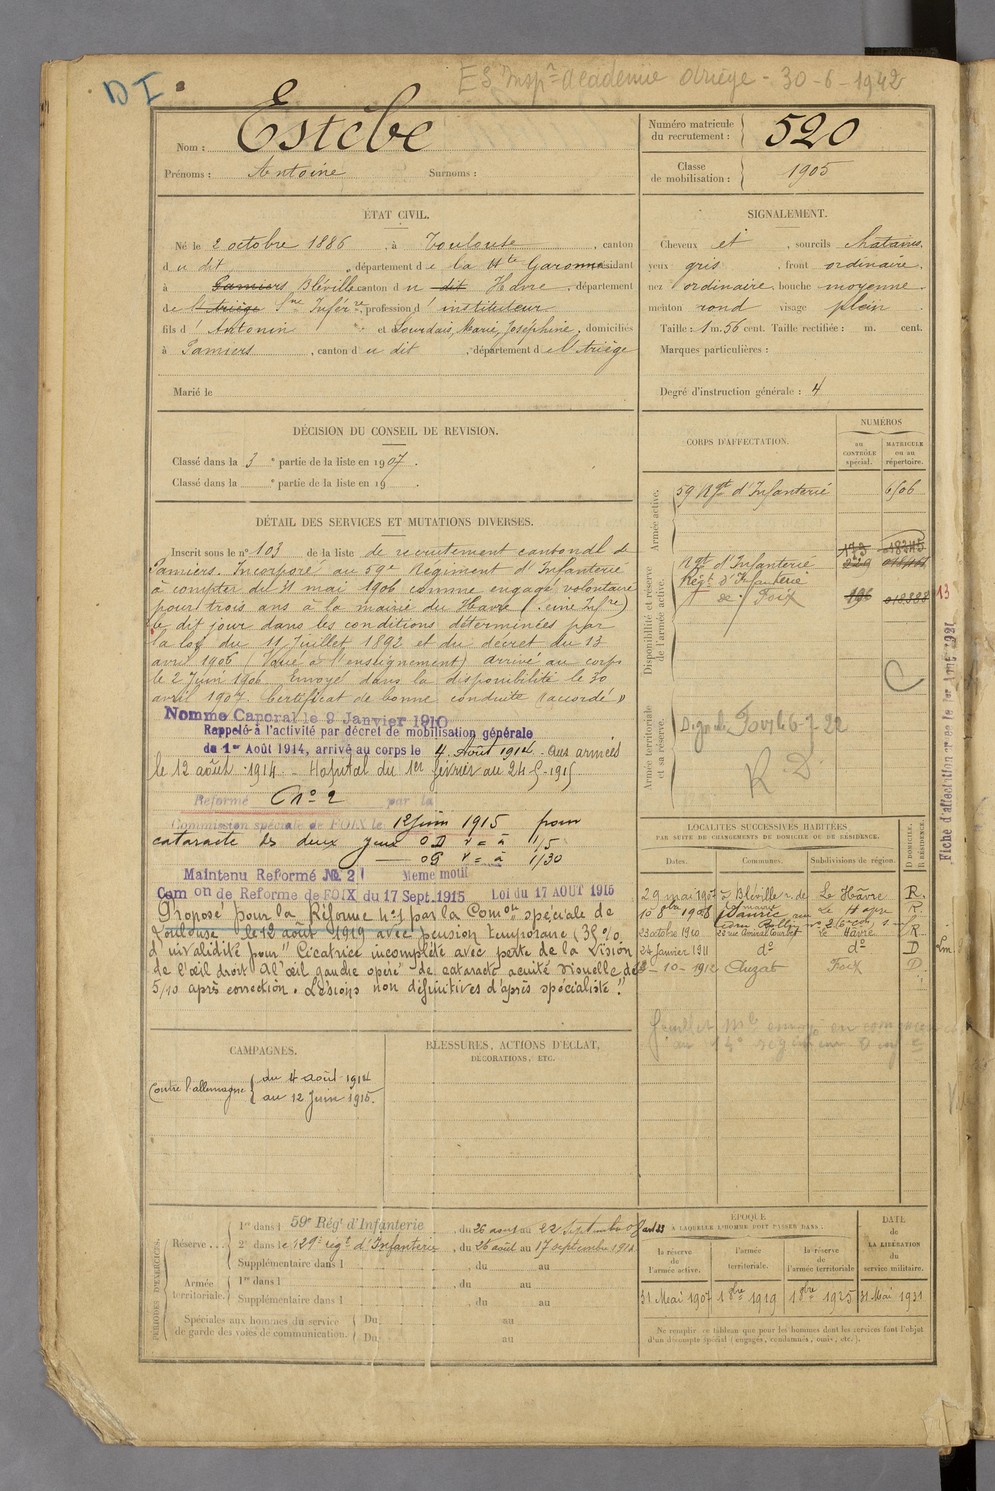 D I
ES Insp°n Académie Ariège - 30-6-1942
Nom : Estèbe
Prénoms : Antoine Surnoms :
Numéro matricule du recrutement : 520
Classe de mobilisation : 1905
ÉTAT CIVIL.
Né le 2 octobre 1886, à Toulouse, canton
du dit, département de la Hte Garonne résidant
à Pamiers Bléville canton du dit Havre, département
de l'Ariège Sne Inférre, profession d'instituteur
fils d'Antonin et Lourdais, Marie, Joséphine, domiciliés
à Pamiers, canton du dit, département de l'Ariège
Marié le
SIGNALEMENT.
Cheveux et, sourcils châtains.
yeux gris, front ordinaire.
nez ordinaire, bouche moyenne.
menton rond visage plein
Taille : 1 m. 56 cent. Taille rectifiée : m. cent.
Marques particulières :
Degré d'instruction générale : 4
DÉCISION DU CONSEIL DE REVISION.
Classé dans la 3e partie de la liste en 1907.
Classé dans la e partie de la liste en 19 .
DÉTAIL DES SERVICES ET MUTATIONS DIVERSES.
Inscrit sous le n° 103 de la liste de recrutement cantonal de
Pamiers. Incorporé au 59e Régiment d'Infanterie
à compter du 31 mai 1906 comme engagé volontaire
pour trois ans à la mairie du Havre (Seine Infre)
le dit jour dans les conditions déterminées par
la loi du 11 Juillet 1892 et du décret du 13
avril 1906 (Voué à l'enseignement) arrivé au corps
le 2 Juin 1906 Envoyé dans la disponibilité le 30
avril 1907. Certificat de bonne conduite "accordé"
Nommé Caporal le 9 Janvier 1910
Rappelé à l'activité par décret de mobilisation générale
du 1er Août 1914, arrivé au corps le 4 Août 1914. Aux armées
le 12 août 1914 - Hopital du 1er février au 24-5-1915
Réformé N° 2 par la
Commission spéciale de FOIX le 12 juin 1915 pour
cataracte des deux yeux OD V = à 1/5
OG V = à 1/30
Maintenu Reformé No 2 Meme motif
Com on de Reforme de FOIX du 17 Sept. 1915 Loi du 17 AOUT 1915
Proposé pour la Réforme n°1 par la Comon spéciale de
Toulouse le 12 août 1919 avec pension temporaire (35 %
d'invalidité pour "Cicatrice incomplète avec perte de la vision
de l'œil droit. A l'œil gauche opéré de cataracte acuité visuelle de
5/10 après correction. Lésions non définitives d'après spécialiste."
CORPS D'AFFECTATION.
NUMÉROS
au CONTRÔLE spécial.
MATRICULE ou au répertoire.
Armée active.
59 Rgt d'Infanterie 6506
Disponibilité et réserve de l'armée active.
173 18345
Rgt d'Infanterie
Régt d'Infanterie
de Foix
Armée territoriale et sa réserve.
R D
C
Fiche d'affectation
LOCALITÉS SUCCESSIVES HABITÉES
PAR SUITE DE CHANGEMENTS DE DOMICILE OU DE RÉSIDENCE.
Dates. Communes. Subdivisions de région. D DOMICILE. R RÉSIDENCE.
29 mai 1907 à Bléville r. de Le Hâvre R.
10 8bre 1908 Sanvic, rue Le Havre R.
23 octobre 1910 22 rue Amiral Courbet le Havre R
24 janvier 1911 d° d° D
8-10-1912 Auzat Foix D
CAMPAGNES.
Contre l'allemagne { du 4 août 1914
au 12 Juin 1915.
BLESSURES, ACTIONS D'ÉCLAT,
DÉCORATIONS, ETC.
PÉRIODES D'EXERCICES.
Réserve... 1re dans l 59e Rég' d'Infanterie, du 26 aout au 22 Septembre
2e dans le 129e régt d'Infanterie, du 26 août au 17 septembre 1911
Supplémentaire dans l , du au
Armée territoriale. 1re dans l , du au
Supplémentaire dans l , du au
Spéciales aux hommes du service
de garde des voies de communication. Du au
Du au
ÉPOQUE
À LAQUELLE L'HOMME DOIT PASSER DANS :
la réserve de l'armée active. l'armée territoriale. la réserve de l'armée territoriale
DATE de LA LIBÉRATION du service militaire.
31 Mai 1907 1 8bre 1919 1 8bre 1925 31 Mai 1931
Ne remplir ce tableau que pour les hommes dont les services font l'objet
d'un décompte spécial (engagés, condamnés, omis, etc.).